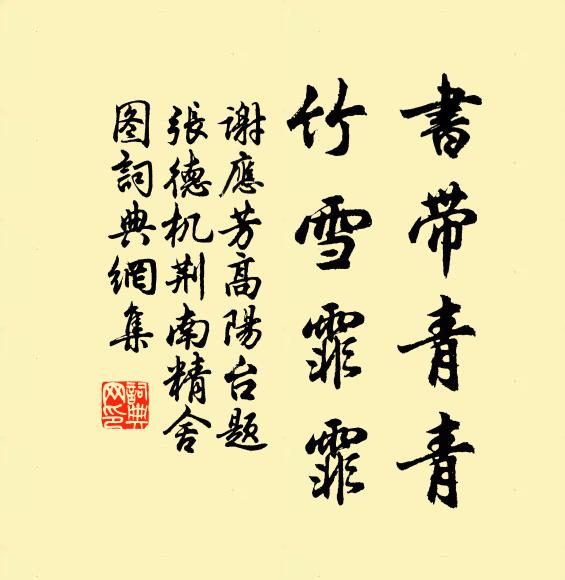 書带青青
竹雪霏霏
谢應芳高陽台题
張德机荆南精舍
图詞典網集
詞典
网印